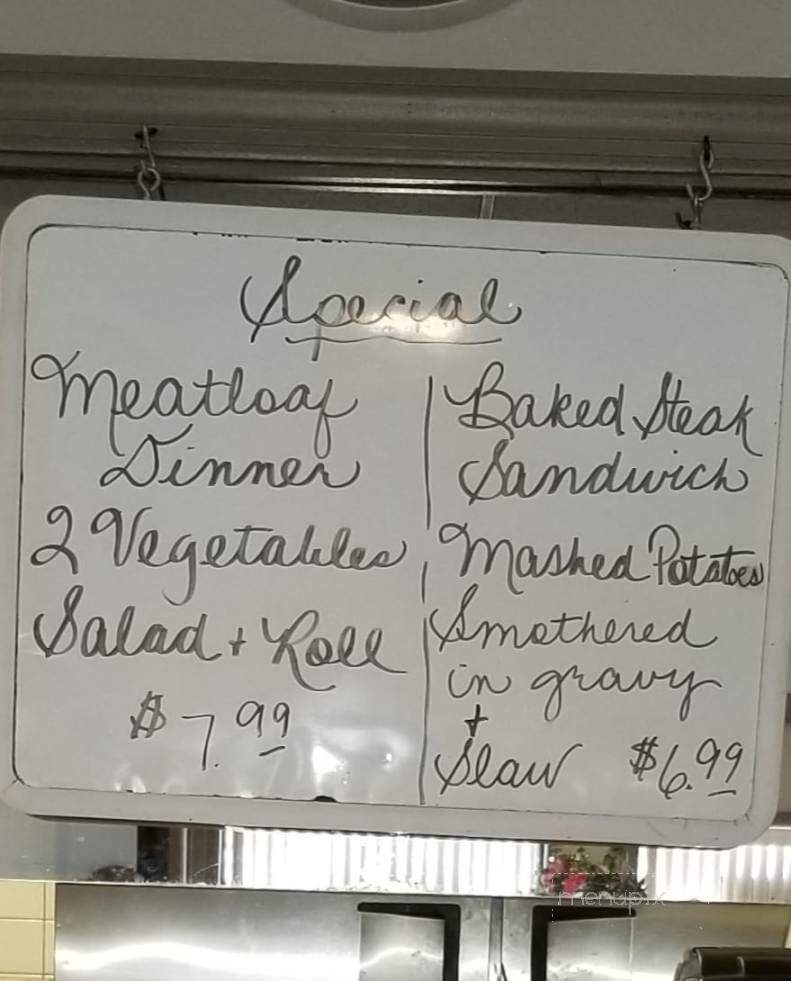 Special
Meatloaf
Dinner
2 Vegetables
Salad + Roll
$7.99
Baked Steak
Sandwich
Mashed Potatoes
Smothered
in gravy
+
Slaw $6.99
menupix